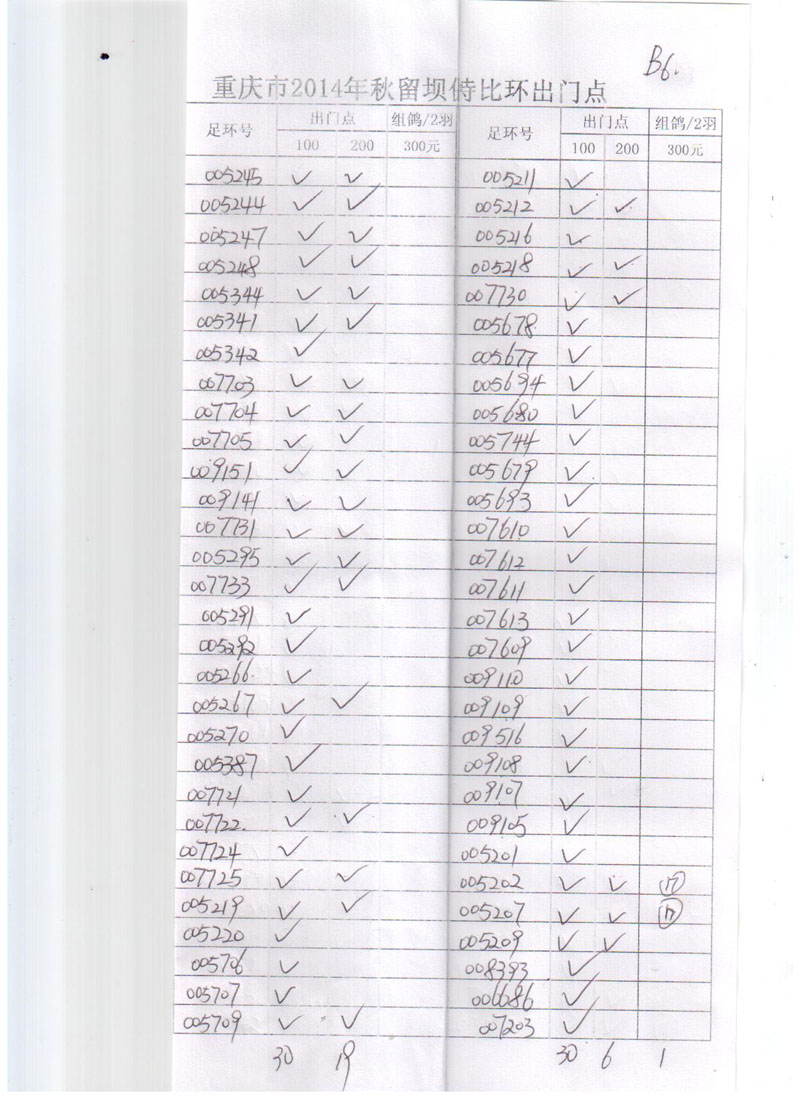 B6.
重庆市2014年秋留坝侍比环出门点
足环号 出门点 组鸽/2羽 足环号 出门点 组鸽/2羽
100 200 300元 100 200 300元
005245 ✓ ✓ 005211 ✓
005244 ✓ ✓ 005212 ✓ ✓
005247 ✓ ✓ 005216 ✓
005248 ✓ ✓ 005218 ✓ ✓
005344 ✓ ✓ 007730 ✓ ✓
005341 ✓ ✓ 005678 ✓
005342 ✓ 005677 ✓
007703 ✓ ✓ 005694 ✓
007704 ✓ ✓ 005680 ✓
007705 ✓ ✓ 005744 ✓
009151 ✓ ✓ 005679 ✓
009141 ✓ ✓ 005693 ✓
007731 ✓ ✓ 007610 ✓
005295 ✓ ✓ 007612 ✓
007733 ✓ ✓ 007611 ✓
005291 ✓ 007613 ✓
005292 ✓ 007609 ✓
005266 ✓ 009110 ✓
005267 ✓ ✓ 009109 ✓
005270 ✓ 009516 ✓
005387 ✓ 009108 ✓
007721 ✓ 009107 ✓
007722 ✓ ✓ 009105 ✓
007724 ✓ 005201 ✓
007725 ✓ ✓ 005202 ✓ ✓ ⑰
005219 ✓ ✓ 005207 ✓ ✓ ⑰
005220 ✓ 005209 ✓ ✓
005706 ✓ 008393 ✓
005707 ✓ 006686 ✓
005709 ✓ ✓ 007203 ✓
30 19 30 6 1